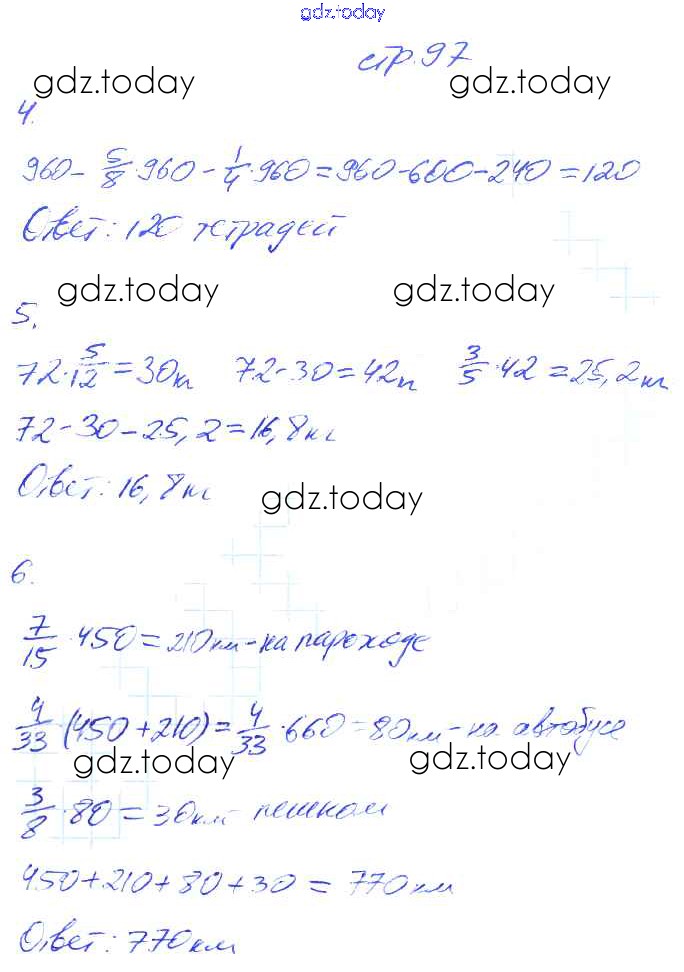 gdz.today
стр.97
gdz.today gdz.today
4.
960 - 5/8 · 960 - 1/4 · 960 = 960 - 600 - 240 = 120
Ответ: 120 тетрадей
gdz.today gdz.today
5.
72 · 5/12 = 30кг 72 - 30 = 42кг 3/5 · 42 = 25,2кг
72 - 30 - 25,2 = 16,8кг
Ответ: 16,8кг
gdz.today
6.
7/15 · 450 = 210км - на пароходе
4/33 · (450 + 210) = 4/33 · 660 = 80км - на автобусе
gdz.today gdz.today
3/8 · 80 = 30км пешком
450 + 210 + 80 + 30 = 770км
Ответ: 770км